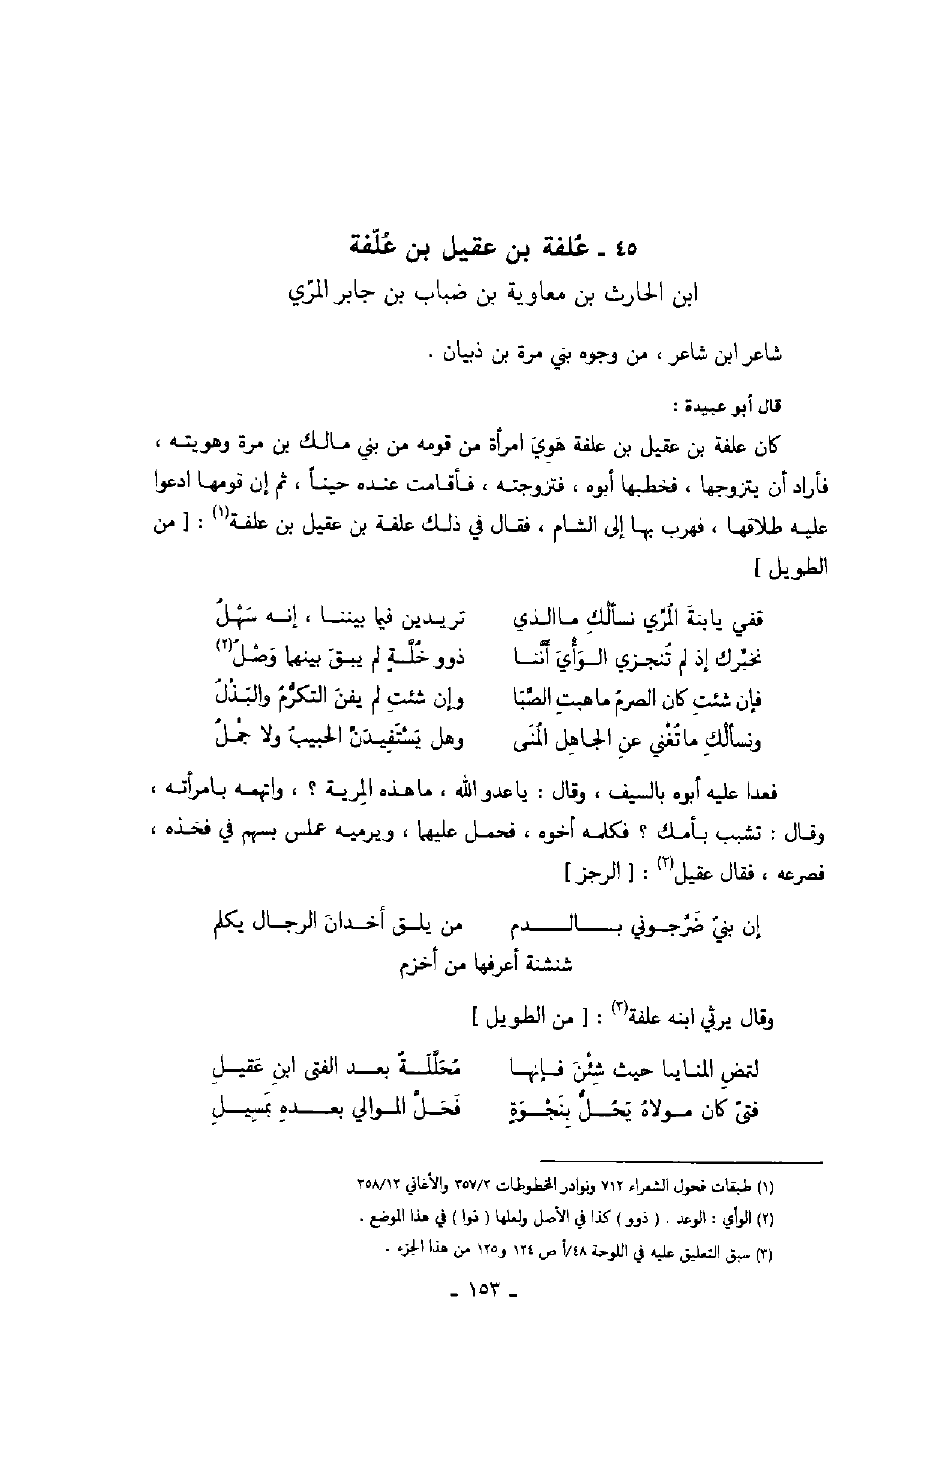 ٤٥ ـ عُلفة بن عقيل بن عُلّفة
ابن الحارث بن معاوية بن ضباب بن جابر المرّي
شاعر ابن شاعر ، من وجوه بني مرة بن ذبيان .
قال أبو عبيدة :
كان علفة بن عقيل بن علفة هَوِيَ امرأة من قومه من بني مالك بن مرة وهويته ،
فأراد أن يتزوجها ، فخطبها أبوه ، فتزوجته ، فأقامت عنده حيناً ، ثم إن قومها ادعوا
عليه طلاقها ، فهرب بها إلى الشام ، فقال في ذلك علفة بن عقيل بن علفة(١) : [ من
الطويل ]
قفي يابنةَ المُرِّي نسألكِ ماالذي تريدين فيما بيننا ، إنه سَهْلُ
نخبِّرك إذ لم تُنجزي الوَأْيَ أَنَّنا ذوو خُلَّةٍ لم يبقَ بينها وَصْلُ(٢)
فإن شئتِ كان الصرمُ ماهبتِ الصَّبَا وإن شئتِ لم يفنَ التكرُّمُ والبَذْلُ
ونسألُكِ ماتُغْني عنِ الجاهلِ المُنَى وهل يَسْتَفِيدَنْ الحبيبُ ولا جُمْلُ
فعدا عليه أبوه بالسيف ، وقال : ياعدو الله ، ماهذه المرية ؟ ، واتهمه بامرأته ،
وقال : تشبب بأمك ؟ فكلمه أخوه ، فحمل عليها ، ويرميه عملس بسهم في فخذه ،
فصرعه ، فقال عقيل(٣) : [ الرجز ]
إن بنيّ ضَرَّجوني بالدم من يلق أخدانَ الرجال يكلم
شنشنة أعرفها من أخزم
وقال يرثي ابنه علفة(٣) : [ من الطويل ]
لتمضِ المنايا حيث شِئْنَ فإنها مُحَلَّلَةٌ بعد الفتى ابنِ عَقيلِ
فتىً كان مولاهُ يَحُلُّ بِنَجْوَةٍ فَحَلَّ الموالي بعده بِمَسِيلِ
(١) طبقات فحول الشعراء ٧١٢ ونوادر المخطوطات ٣٥٧/٢ والأغاني ٣٥٨/١٢
(٢) الوأي : الوعد . ( ذوو ) كذا في الأصل ولعلها ( ذوا ) في هذا الموضع .
(٣) سبق التعليق عليه في اللوحة ٤٨/أ ص ١٢٤ و١٢٥ من هذا الجزء .
ـ ١٥٣ ـ